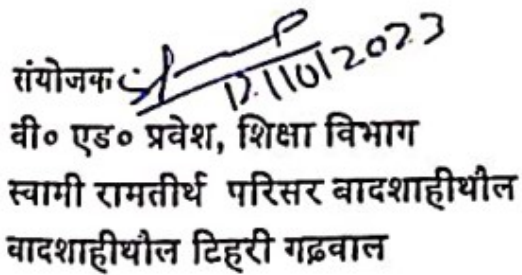 संयोजक
17/10/2023
वी० एड० प्रवेश, शिक्षा विभाग
स्वामी रामतीर्थ परिसर वादशाहीथौल
वादशाहीथौल टिहरी गढ़वाल